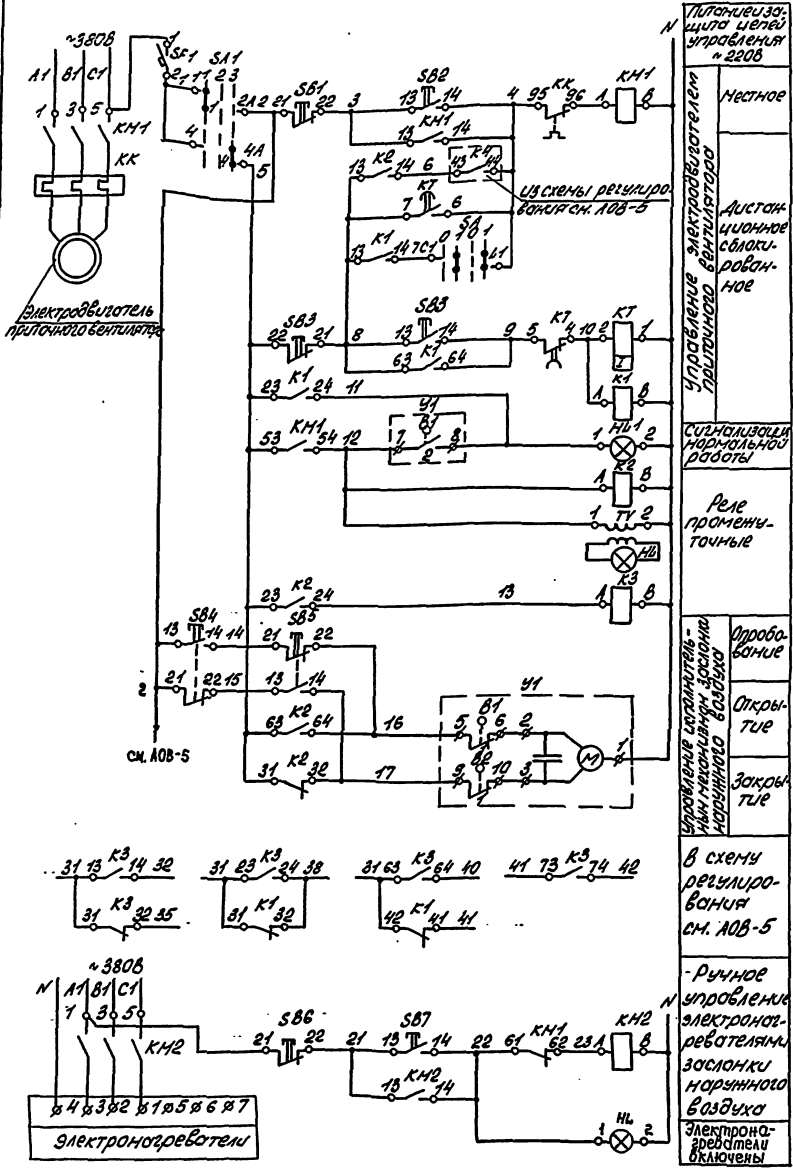 ~380В
А1 В1 С1
1 3 5
КМ1
КК
Электродвигатель
приточного вентилятора
1
SF1
2
SA1
1 1 1 2 3
1
4
2А 2
4 4А
5
21 SB1 22
3
SB2
13 14
4
95 КК 96
КМ1
А В
N
13 КМ1 14
К2
13 14 6
К4
43 44
Из схемы регулиро-
вания см. АОВ-5
КТ
7 6
К1
13 14 7 С1
SA
0 1 0 1
L1
SB3
22 21
8
SB3
13 14
9
КТ
5 4 10
КТ
2 1
К1
63 64
К1
А В
К1
23 24 11
КМ1
53 54 12
У1
В1
7 2 8
HL1
1 2
К2
А В
TV
1 2
HL
К2
23 24
13
К3
А В
SB4
13 14 14
SB5
21 22
2
21 22 15
13 14
К2
63 64
16
К2
31 32
17
см. АОВ-5
У1
В1
5 6 2
В2
9 10 3
М
1
31 13 К3 14 32
31 К3 32 35
31 23 К3 24 38
31 К1 32
31 63 К3 64 40
42 К1 41 41
41 73 К3 74 42
~380В
N А1 В1 С1
1 3 5
КМ2
4 3 2 1 5 6 7
Электронагреватели
SB6
21 22
21
SB7
13 14
22
КМ1
61 62 23
КМ2
А В
N
КМ2
13 14
HL
1 2
Питание и за-
щита цепей
управления
~220В
Управление электродвигателем
приточного вентилятора
Местное
Дистан-
ционное
сблоки-
рован-
ное
Сигнализация
нормальной
работы
Реле
промежу-
точные
Управление исполнитель-
ным механизмом заслонки
наружного воздуха
Опробо-
вание
Откры-
тие
Закры-
тие
В схему
регулиро-
вания
см. АОВ-5
Ручное
управление
электронаг-
ревателями
заслонки
наружного
воздуха
Электрона-
греватели
включены